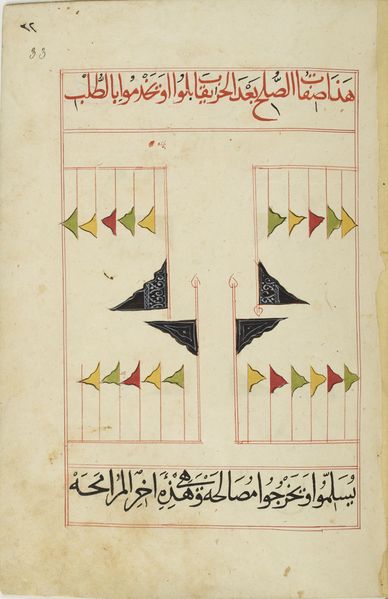 ٣٢
33
هذا صفات الصلح بعد الحرب يقابلوا او يخدموا بالطلب
يسلموا او يخرجوا مصالحه وهي هذه اخر المرامحه